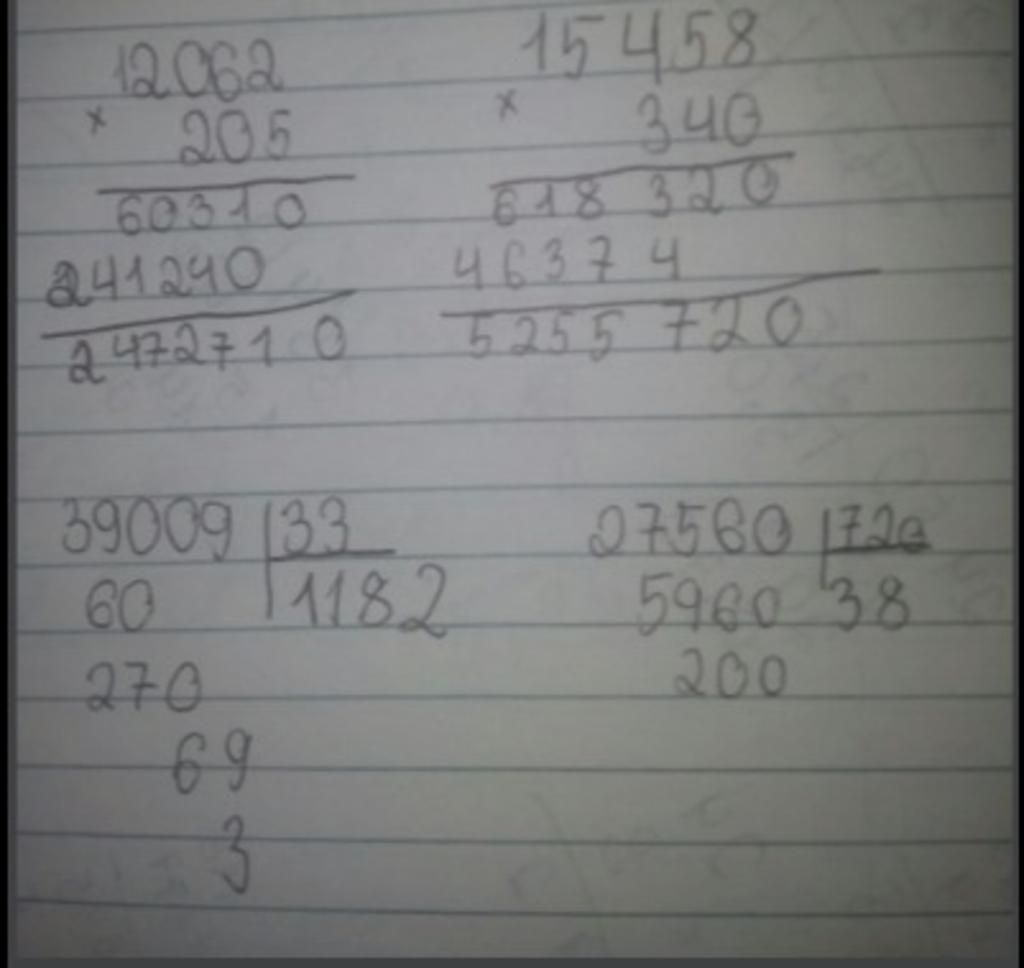 12062 15458
× 205 × 340
60310 618 320
241240 46374
2472710 5255 720
39009 33 27560 720
60 1182 5960 38
270 200
69
3